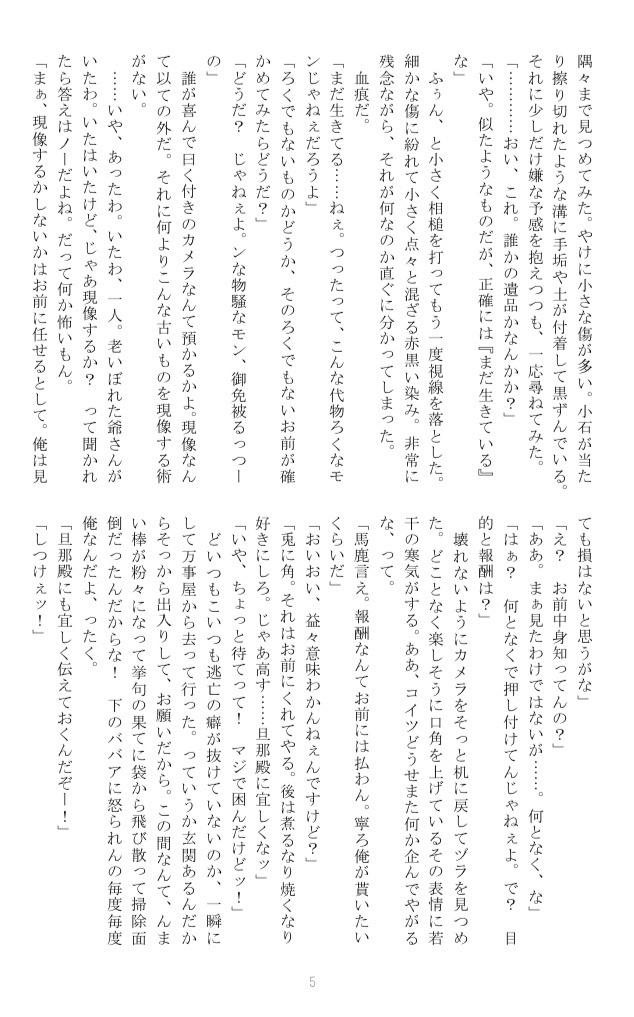 隅々まで見つめてみた。やけに小さな傷が多い。小石が当た
り擦り切れたような溝に手垢や土が付着して黒ずんでいる。
それに少しだけ嫌な予感を抱えつつも、一応尋ねてみた。
「…………おい、これ。誰かの遺品かなんかか？」
「いや。似たようなものだが、正確には『まだ生きている』
な」
　ふぅん、と小さく相槌を打ってもう一度視線を落とした。
細かな傷に紛れて小さく点々と混ざる赤黒い染み。非常に
残念ながら、それが何なのか直ぐに分かってしまった。
　血痕だ。
「まだ生きてる……ねぇ。つったって、こんな代物ろくなモ
ンじゃねぇだろうよ」
「ろくでもないものかどうか、そのろくでもないお前が確
かめてみたらどうだ？」
「どうだ？　じゃねぇよ。ンな物騒なモン、御免被るっつー
の」
　誰が喜んで曰く付きのカメラなんて預かるかよ。現像なん
て以ての外だ。それに何よりこんな古いものを現像する術
がない。
　……いや、あったわ。いたわ、一人。老いぼれた爺さんが
いたわ。いたはいたけど、じゃあ現像するか？　って聞かれ
たら答えはノーだよね。だって何か怖いもん。
「まぁ、現像するかしないかはお前に任せるとして。俺は見
ても損はないと思うがな」
「え？　お前中身知ってんの？」
「ああ。まぁ見たわけではないが……。何となく、な」
「はぁ？　何となくで押し付けてんじゃねぇよ。で？　目
的と報酬は？」
　壊れないようにカメラをそっと机に戻してヅラを見つめ
た。どことなく楽しそうに口角を上げているその表情に若
干の寒気がする。ああ、コイツどうせまた何か企んでやがる
な、って。
「馬鹿言え。報酬なんてお前には払わん。寧ろ俺が貰いたい
くらいだ」
「おいおい、益々意味わかんねぇんですけど？」
「兎に角。それはお前にくれてやる。後は煮るなり焼くなり
好きにしろ。じゃあ高す……旦那殿に宜しくなッ」
「いや、ちょっと待てって！　マジで困んだけどッ！」
　どいつもこいつも逃亡の癖が抜けていないのか、一瞬に
して万事屋から去って行った。っていうか玄関あるんだか
らそっから出入りして、お願いだから。この間なんて、んま
い棒が粉々になって挙句の果てに袋から飛び散って掃除面
倒だったんだからな！　下のババアに怒られんの毎度毎度
俺なんだよ、ったく。
「旦那殿にも宜しく伝えておくんだぞー！」
「しつけぇッ！」
5